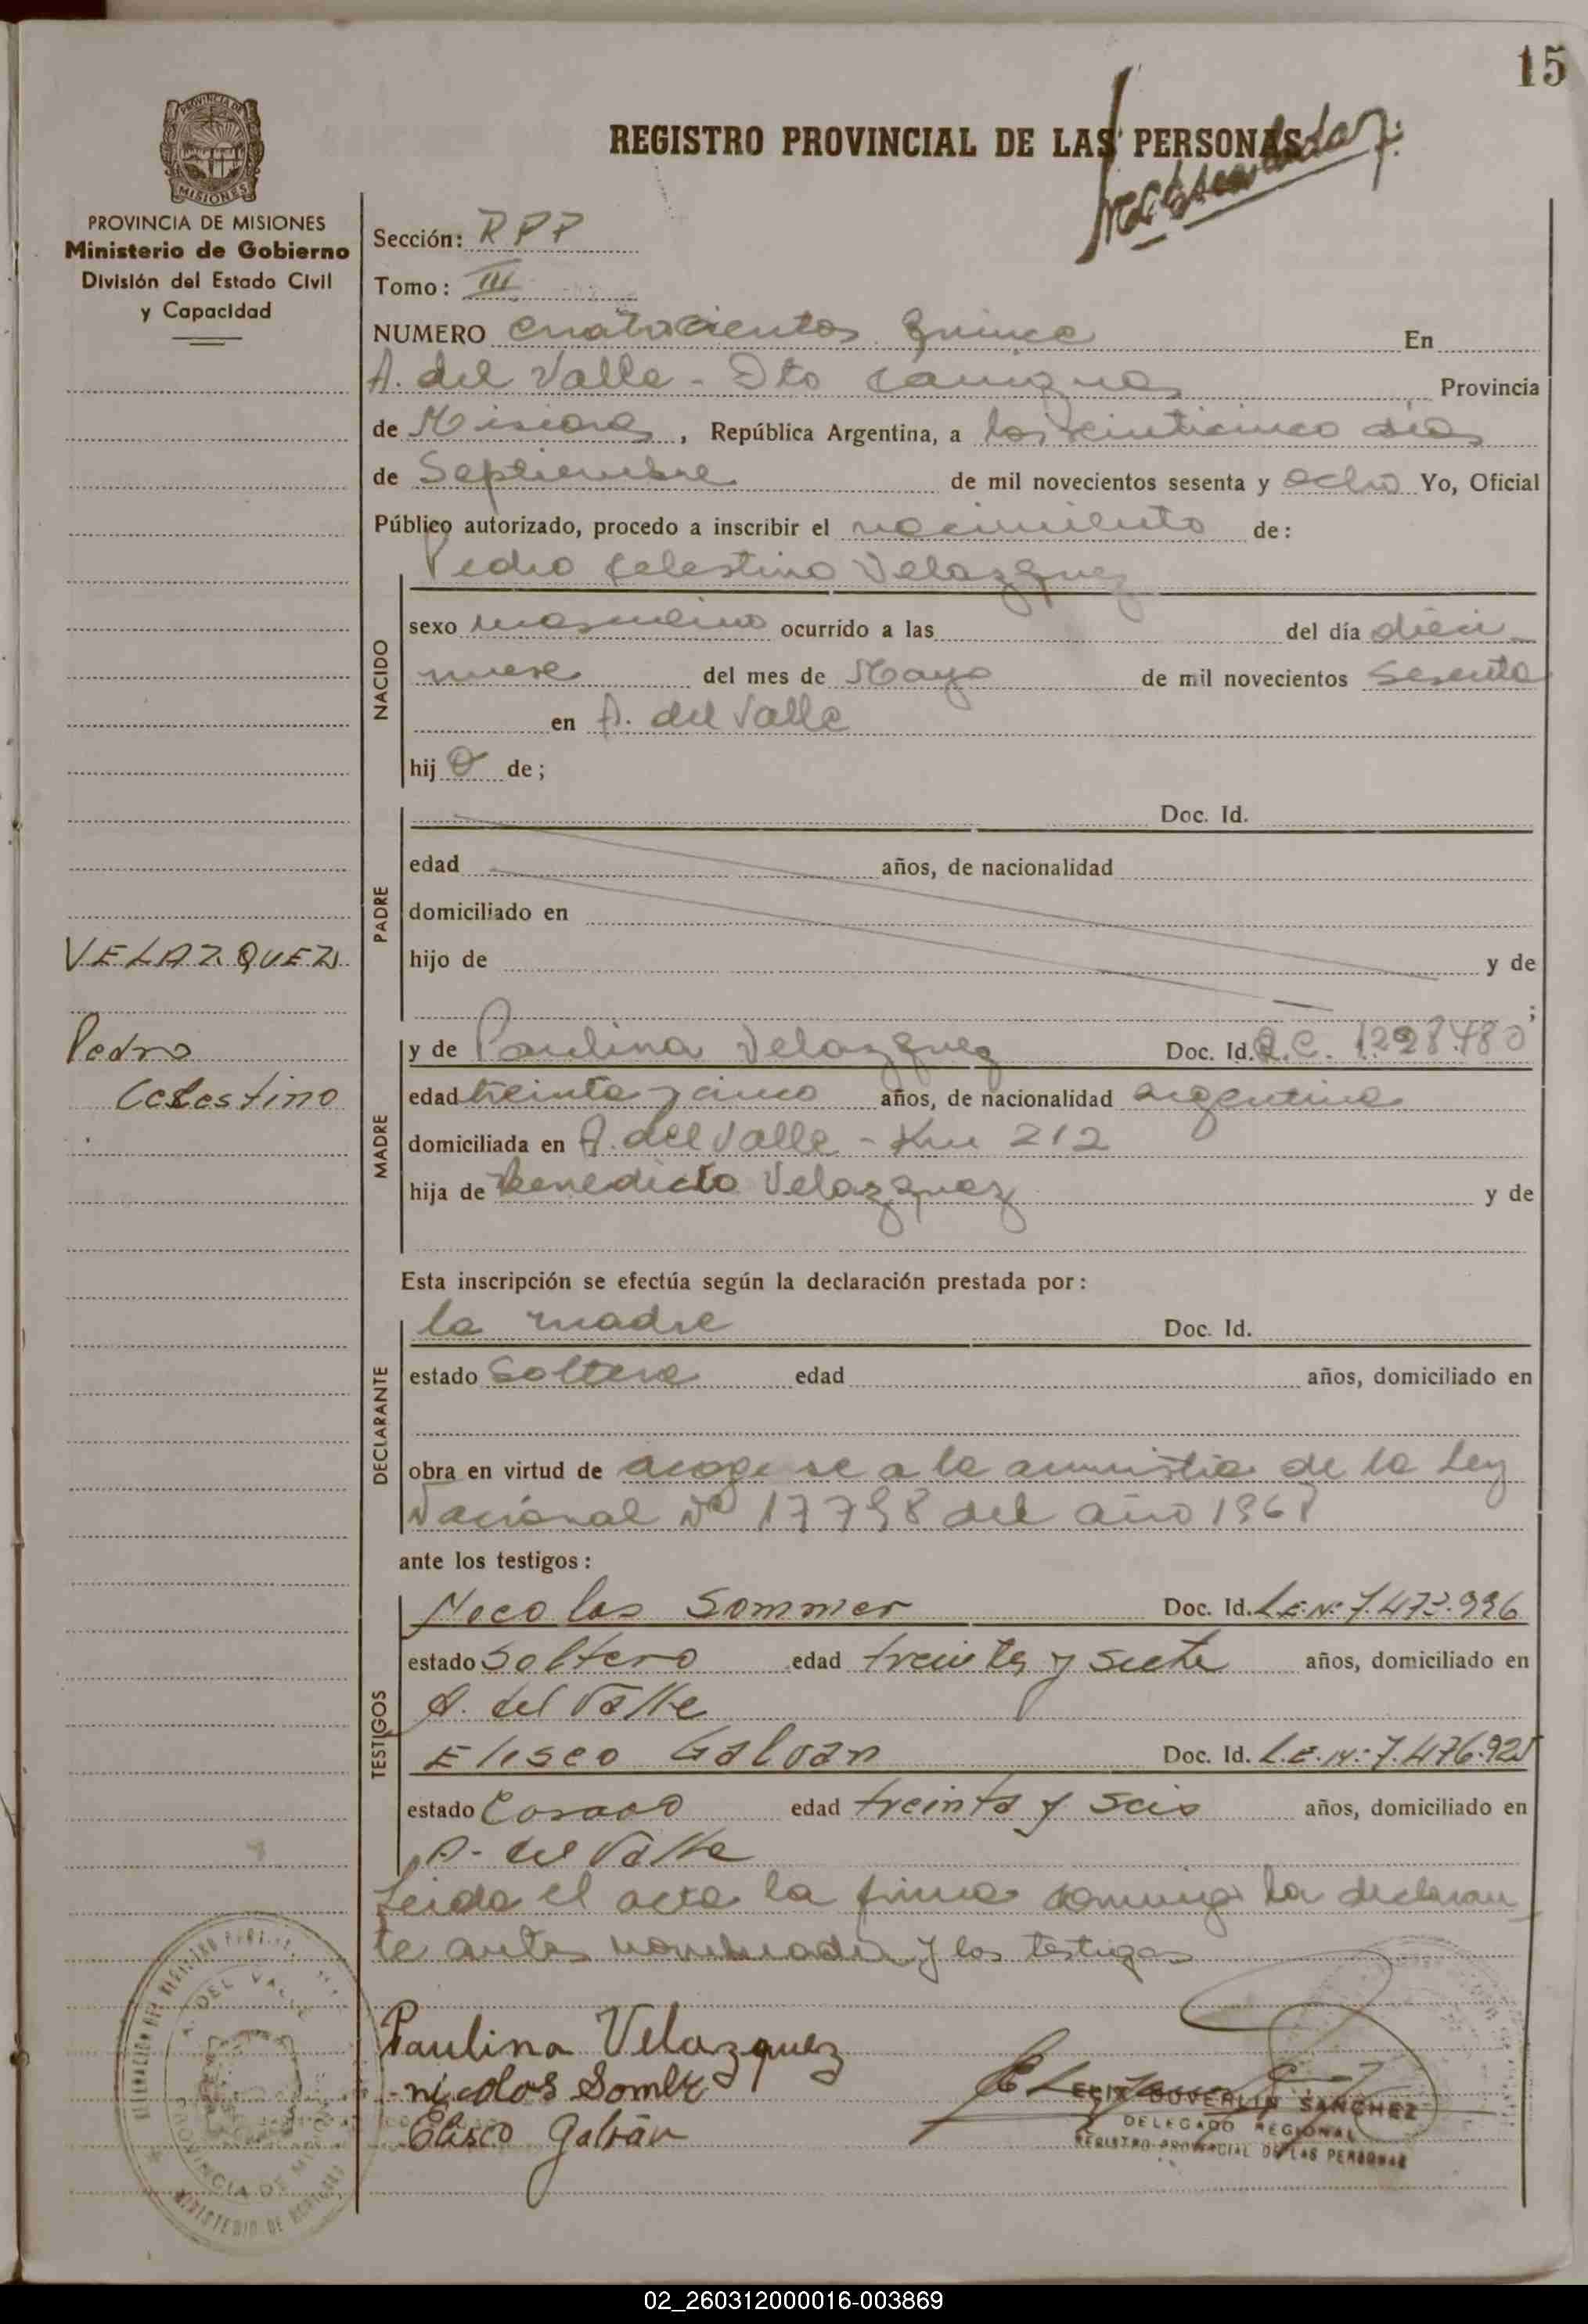 15
REGISTRO PROVINCIAL DE LAS PERSONAS
PROVINCIA DE
MISIONES
PROVINCIA DE MISIONES
Ministerio de Gobierno
División del Estado Civil
y Capacidad
Sección: RPP
Tomo: III
NUMERO cuatrocientos quince En
A. del Valle - Dto Cainguas Provincia
de Misiones, República Argentina, a los veinticinco días
de Septiembre de mil novecientos sesenta y ocho Yo, Oficial
Público autorizado, procedo a inscribir el nacimiento de:
Pedro Celestino Velazquez
NACIDO
sexo masculino ocurrido a las del día dieci
nueve del mes de Mayo de mil novecientos sesenta
en A. del Valle
hijo de;
PADRE
Doc. Id.
edad años, de nacionalidad
domiciliado en
hijo de y de
;
VELAZQUEZ
Pedro
Celestino
MADRE
y de Paulina Velazquez Doc. Id. C. 1228480
edad treinta y cinco años, de nacionalidad argentina
domiciliada en A. del Valle - Km 212
hija de Benedicto Velazquez y de
Esta inscripción se efectúa según la declaración prestada por:
DECLARANTE
la madre Doc. Id.
estado Soltera edad años, domiciliado en
obra en virtud de acogerse a la amnistia de la Ley
Nacional Nº 17798 del año 1968
ante los testigos:
TESTIGOS
Nicolas Sommer Doc. Id. L.E.Nº 7.473.996
estado Soltero edad treinta y siete años, domiciliado en
A. del Valle
Eliseo Galvan Doc. Id. L.E.Nº 7.476.925
estado Casado edad treinta y seis años, domiciliado en
A. del Valle
Leida el acta la firma conmigo la declaran
te antes nombrada y los testigos
Paulina Velazquez
nicolas Somer
Eliseo Galván
A. DEL VALLE
PROVINCIA DE MISIONES
MINISTERIO DE
SANCHEZ
DELEGADO REGIONAL
REGISTRO PROVINCIAL DE LAS PERSONAS
02_260312000016-003869